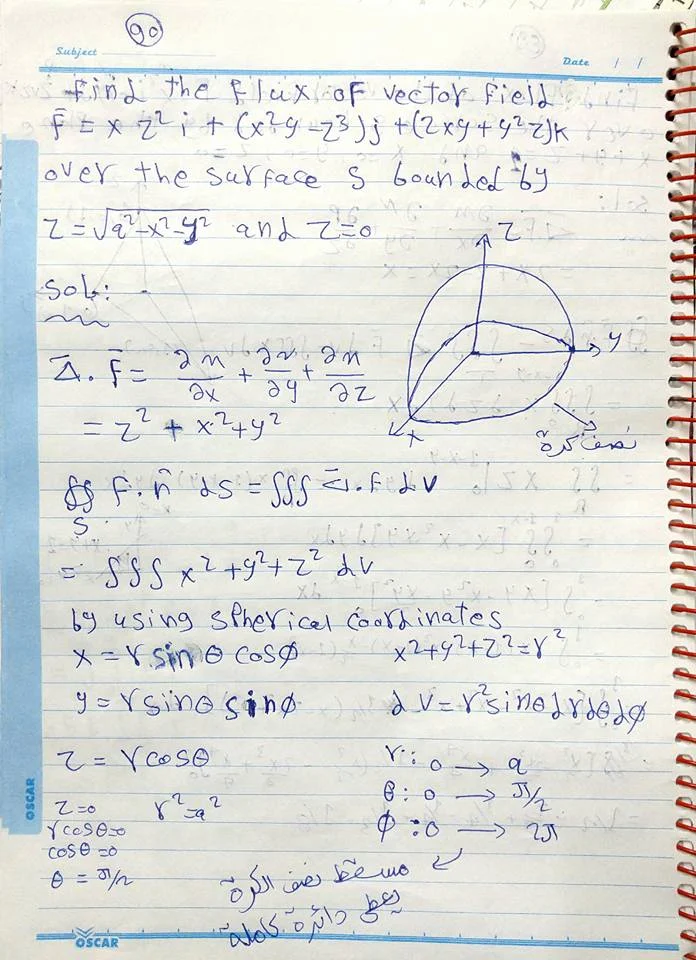 90
Subject
Date / /
Find the Flux of vector field
F̄ = x z² i + (x²y - z³) j + (2xy + y²z) k
over the surface S bounded by
z = √(a² - x² - y²) and z = 0
Sol:
z
y
x
نصف كرة
∇̄ . F̄ = ∂M/∂x + ∂N/∂y + ∂M/∂z
= z² + x² + y²
∯ F . n̂ ds = ∭ ∇̄ . F dV
S
= ∭ x² + y² + z² dV
by using spherical coordinates
x = r sin θ cos φ x² + y² + z² = r²
y = r sin θ sin φ dV = r² sin θ dr dθ dφ
z = r cos θ r : 0 → a
z = 0 r² = a² θ : 0 → π/2
r cos θ = 0 φ : 0 → 2π
cos θ = 0
θ = π/2
مسقط نصف الكرة
يعطى دائرة كاملة
OSCAR
OSCAR